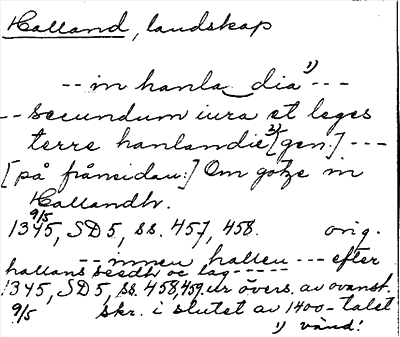 Halland, landskap
-- in hanla dia 1) ---
-- secundum iura et leges
terre hanlandie 2) [gen.] ---
[på frånsidan:] Om götze in
Hallandh.
9/5
1345, SD5, ss. 457, 458. orig.
-- innen hallen --- efter
hallans seedh oc lag -----
1345, SD5, ss. 458, 459. ur övers. av ovanst.
9/5 skr. i slutet av 1400-talet
1) vänd!